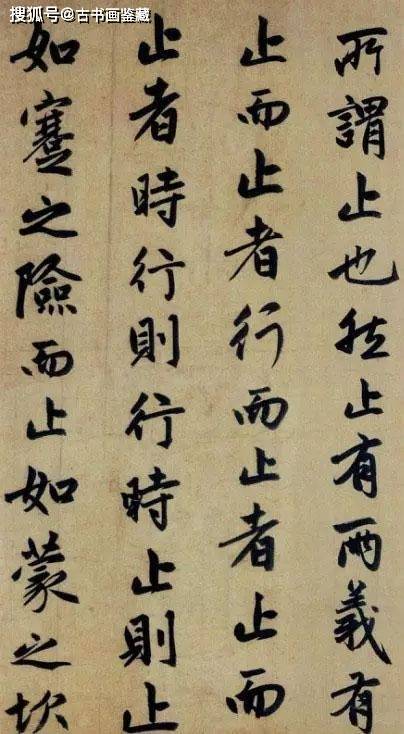 搜狐号@古书画鉴藏
所謂止也然止有兩義有
止而止者行而止者止而
止者時行則行時止則止
如蹇之險而止如蒙之坎